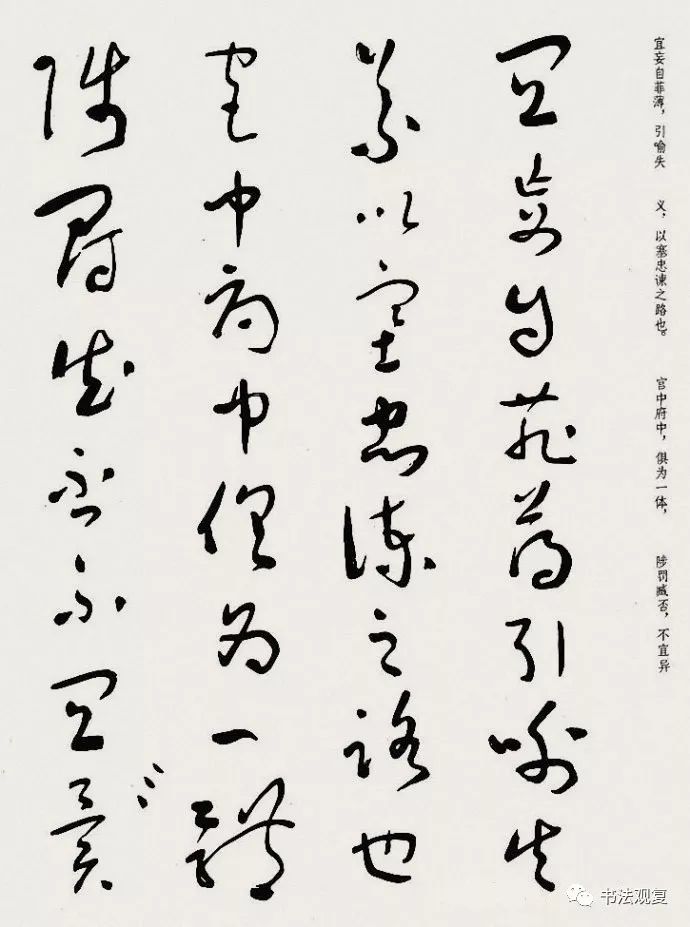 宜妄自菲薄，引喻失　义，以塞忠谏之路也。　宫中府中，俱为一体，　陟罚臧否，不宜异
宜妄自菲薄引喻失
義以塞忠諫之路也
宫中府中俱為一體
陟罰臧否不宜異
书法观复